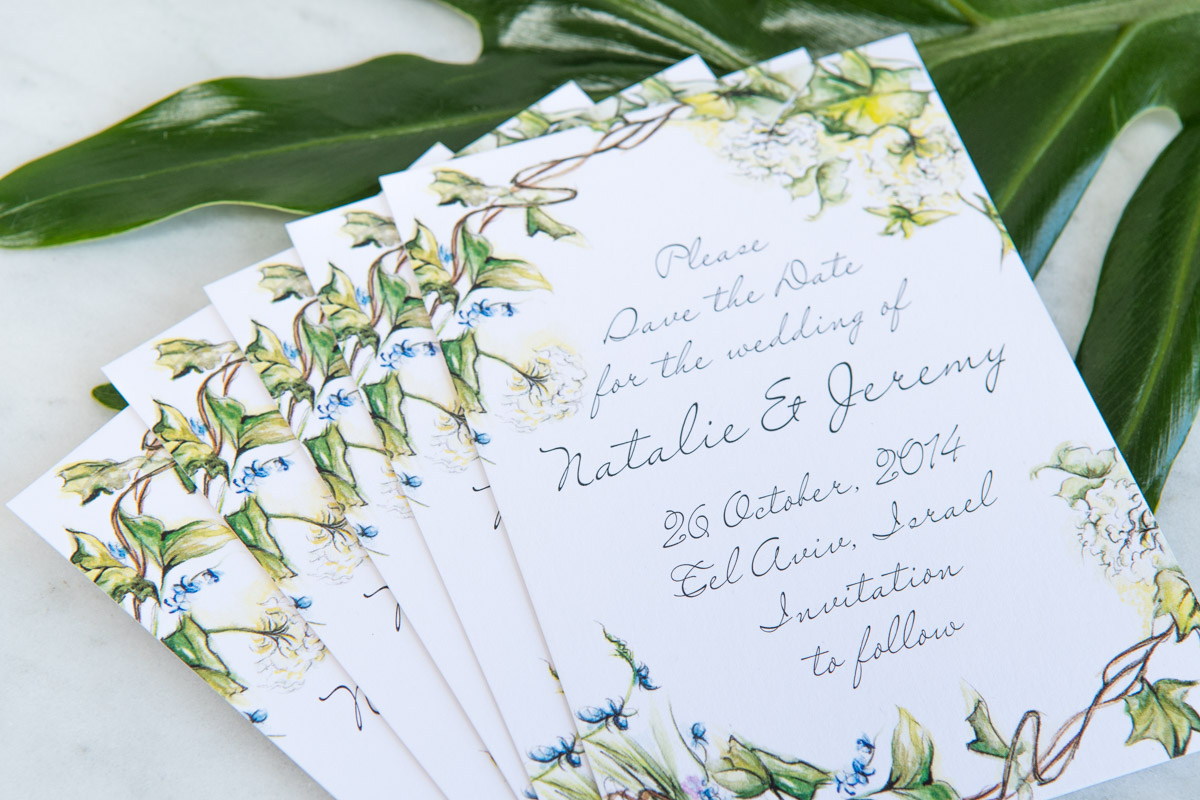 Please
Save the Date
for the wedding of
Natalie & Jeremy
26 October, 2014
Tel Aviv, Israel
Invitation
to follow